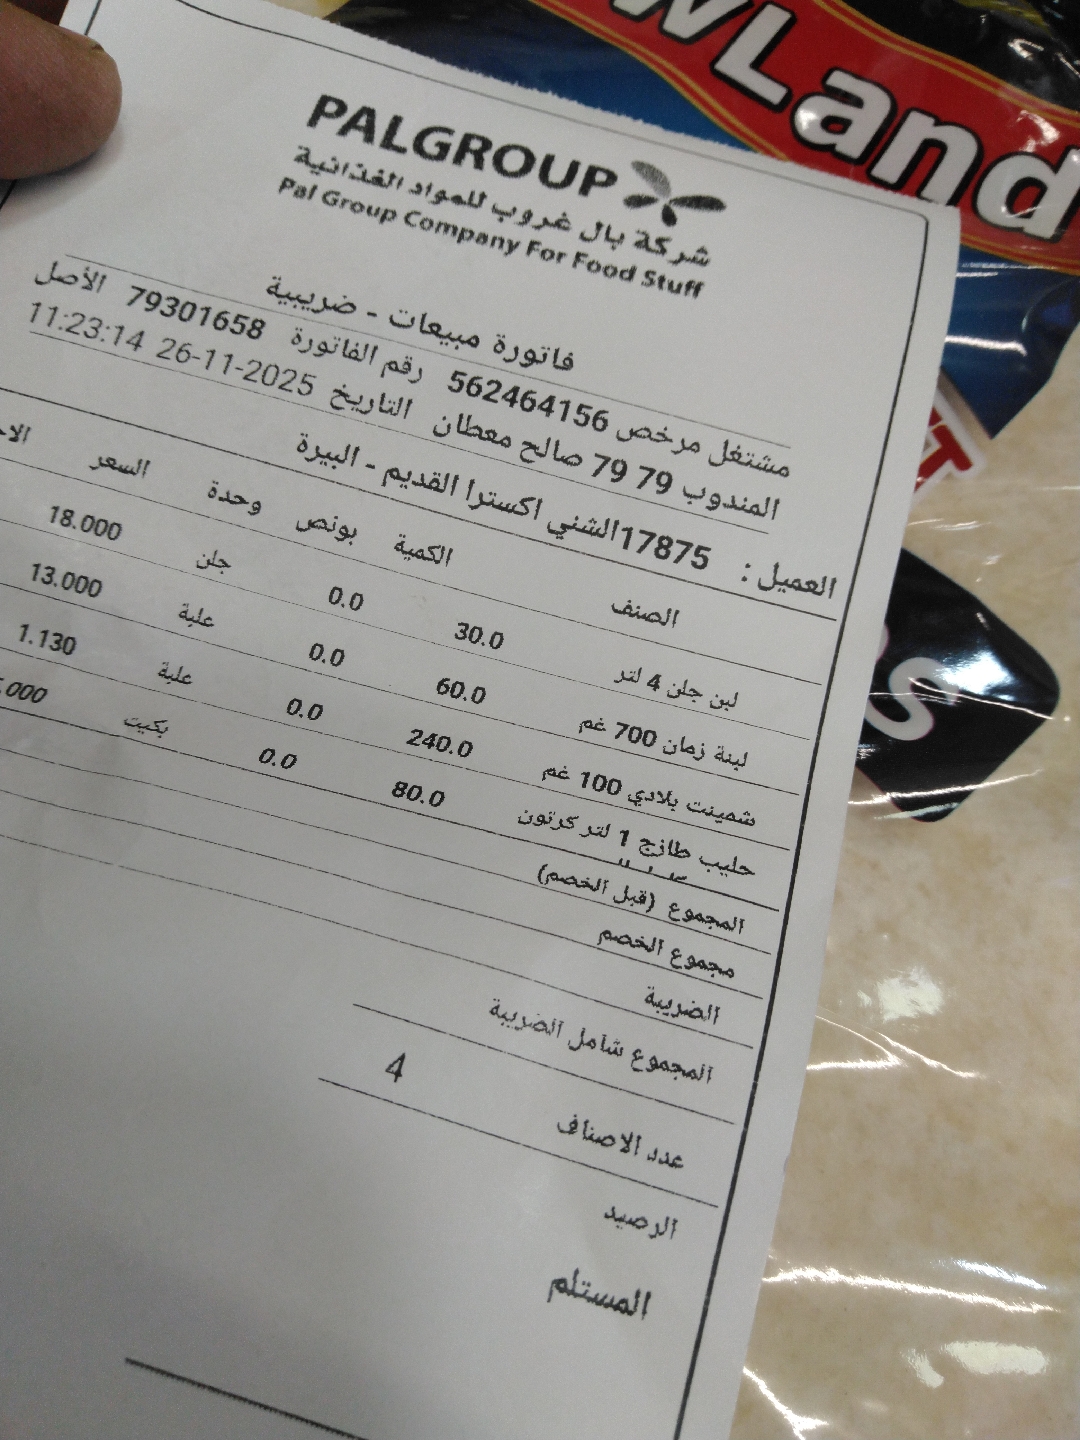 wLand
PALGROUP
شركة بال غروب للمواد الغذائية
Pal Group Company For Food Stuff
فاتورة مبيعات - ضريبية
مشتغل مرخص 562464156 رقم الفاتورة 79301658 الأصل
المندوب 79 79 صالح معطان التاريخ 26-11-2025 11:23:14
العميل : 17875الشني اكسترا القديم - البيرة
الصنف الكمية بونص وحدة السعر
لبن جلن 4 لتر 30.0 0.0 جلن 18.000
لبنة زمان 700 غم 60.0 0.0 علبة 13.000
شمينت بلادي 100 غم 240.0 0.0 علبة 1.130
حليب طازج 1 لتر كرتون 80.0 0.0 بكيت .000
المجموع (قبل الخصم)
مجموع الخصم
الضريبة
المجموع شامل الضريبة
عدد الاصناف 4
الرصيد
المستلم